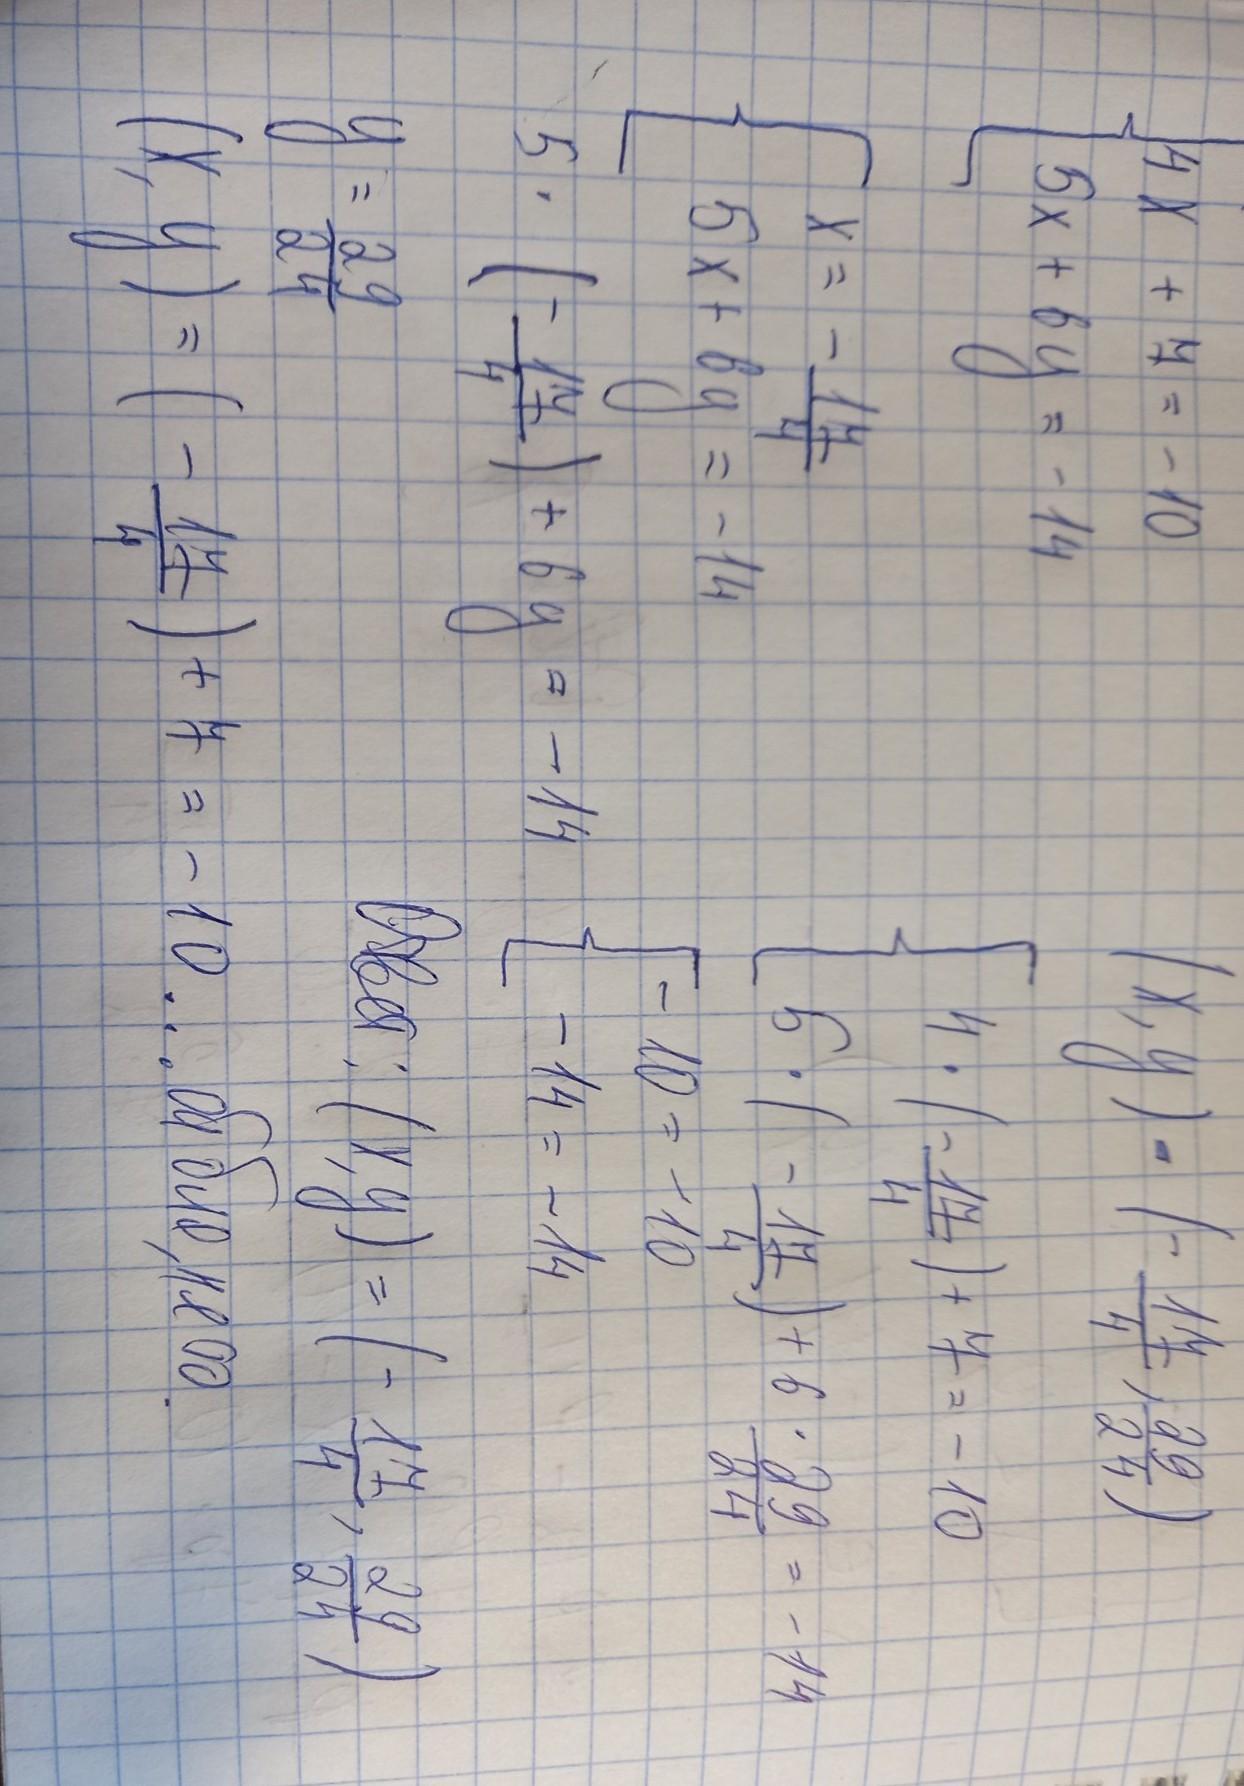 4x + 7 = -10
5x + 6y = -14
x = - 17/4
5x + 6y = -14
5 · (- 17/4) + 6y = -14
y = 29/24
(x, y) = (- 17/4) + 7 = -10 ...
(x, y) = (- 17/4, 29/24)
4 · (- 17/4) + 7 = -10
5 · (- 17/4) + 6 · 29/24 = -14
-10 = -10
-14 = -14
: (x, y) = (- 17/4, 29/24)